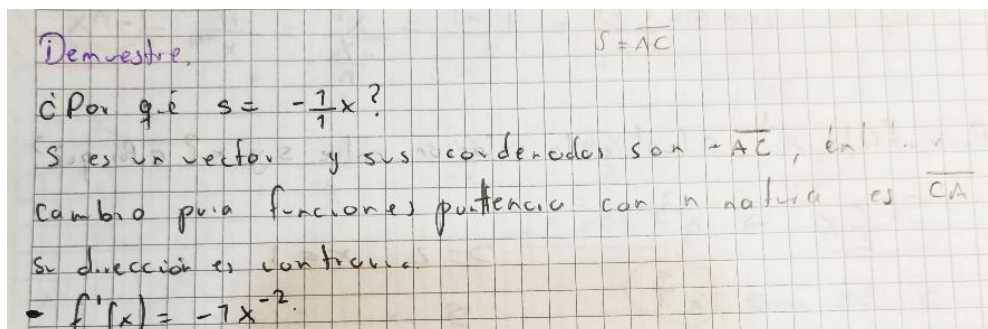 Demuestre.
S = \overline{AC}
¿Por qué s = -\frac{1}{1}x?
S es un vector y sus cordenadas son -\overline{AC}, en
cambio para funciones potencia con n natura es \overline{CA}
su dirección es contraria
- f'(x) = -1x^{-2}.